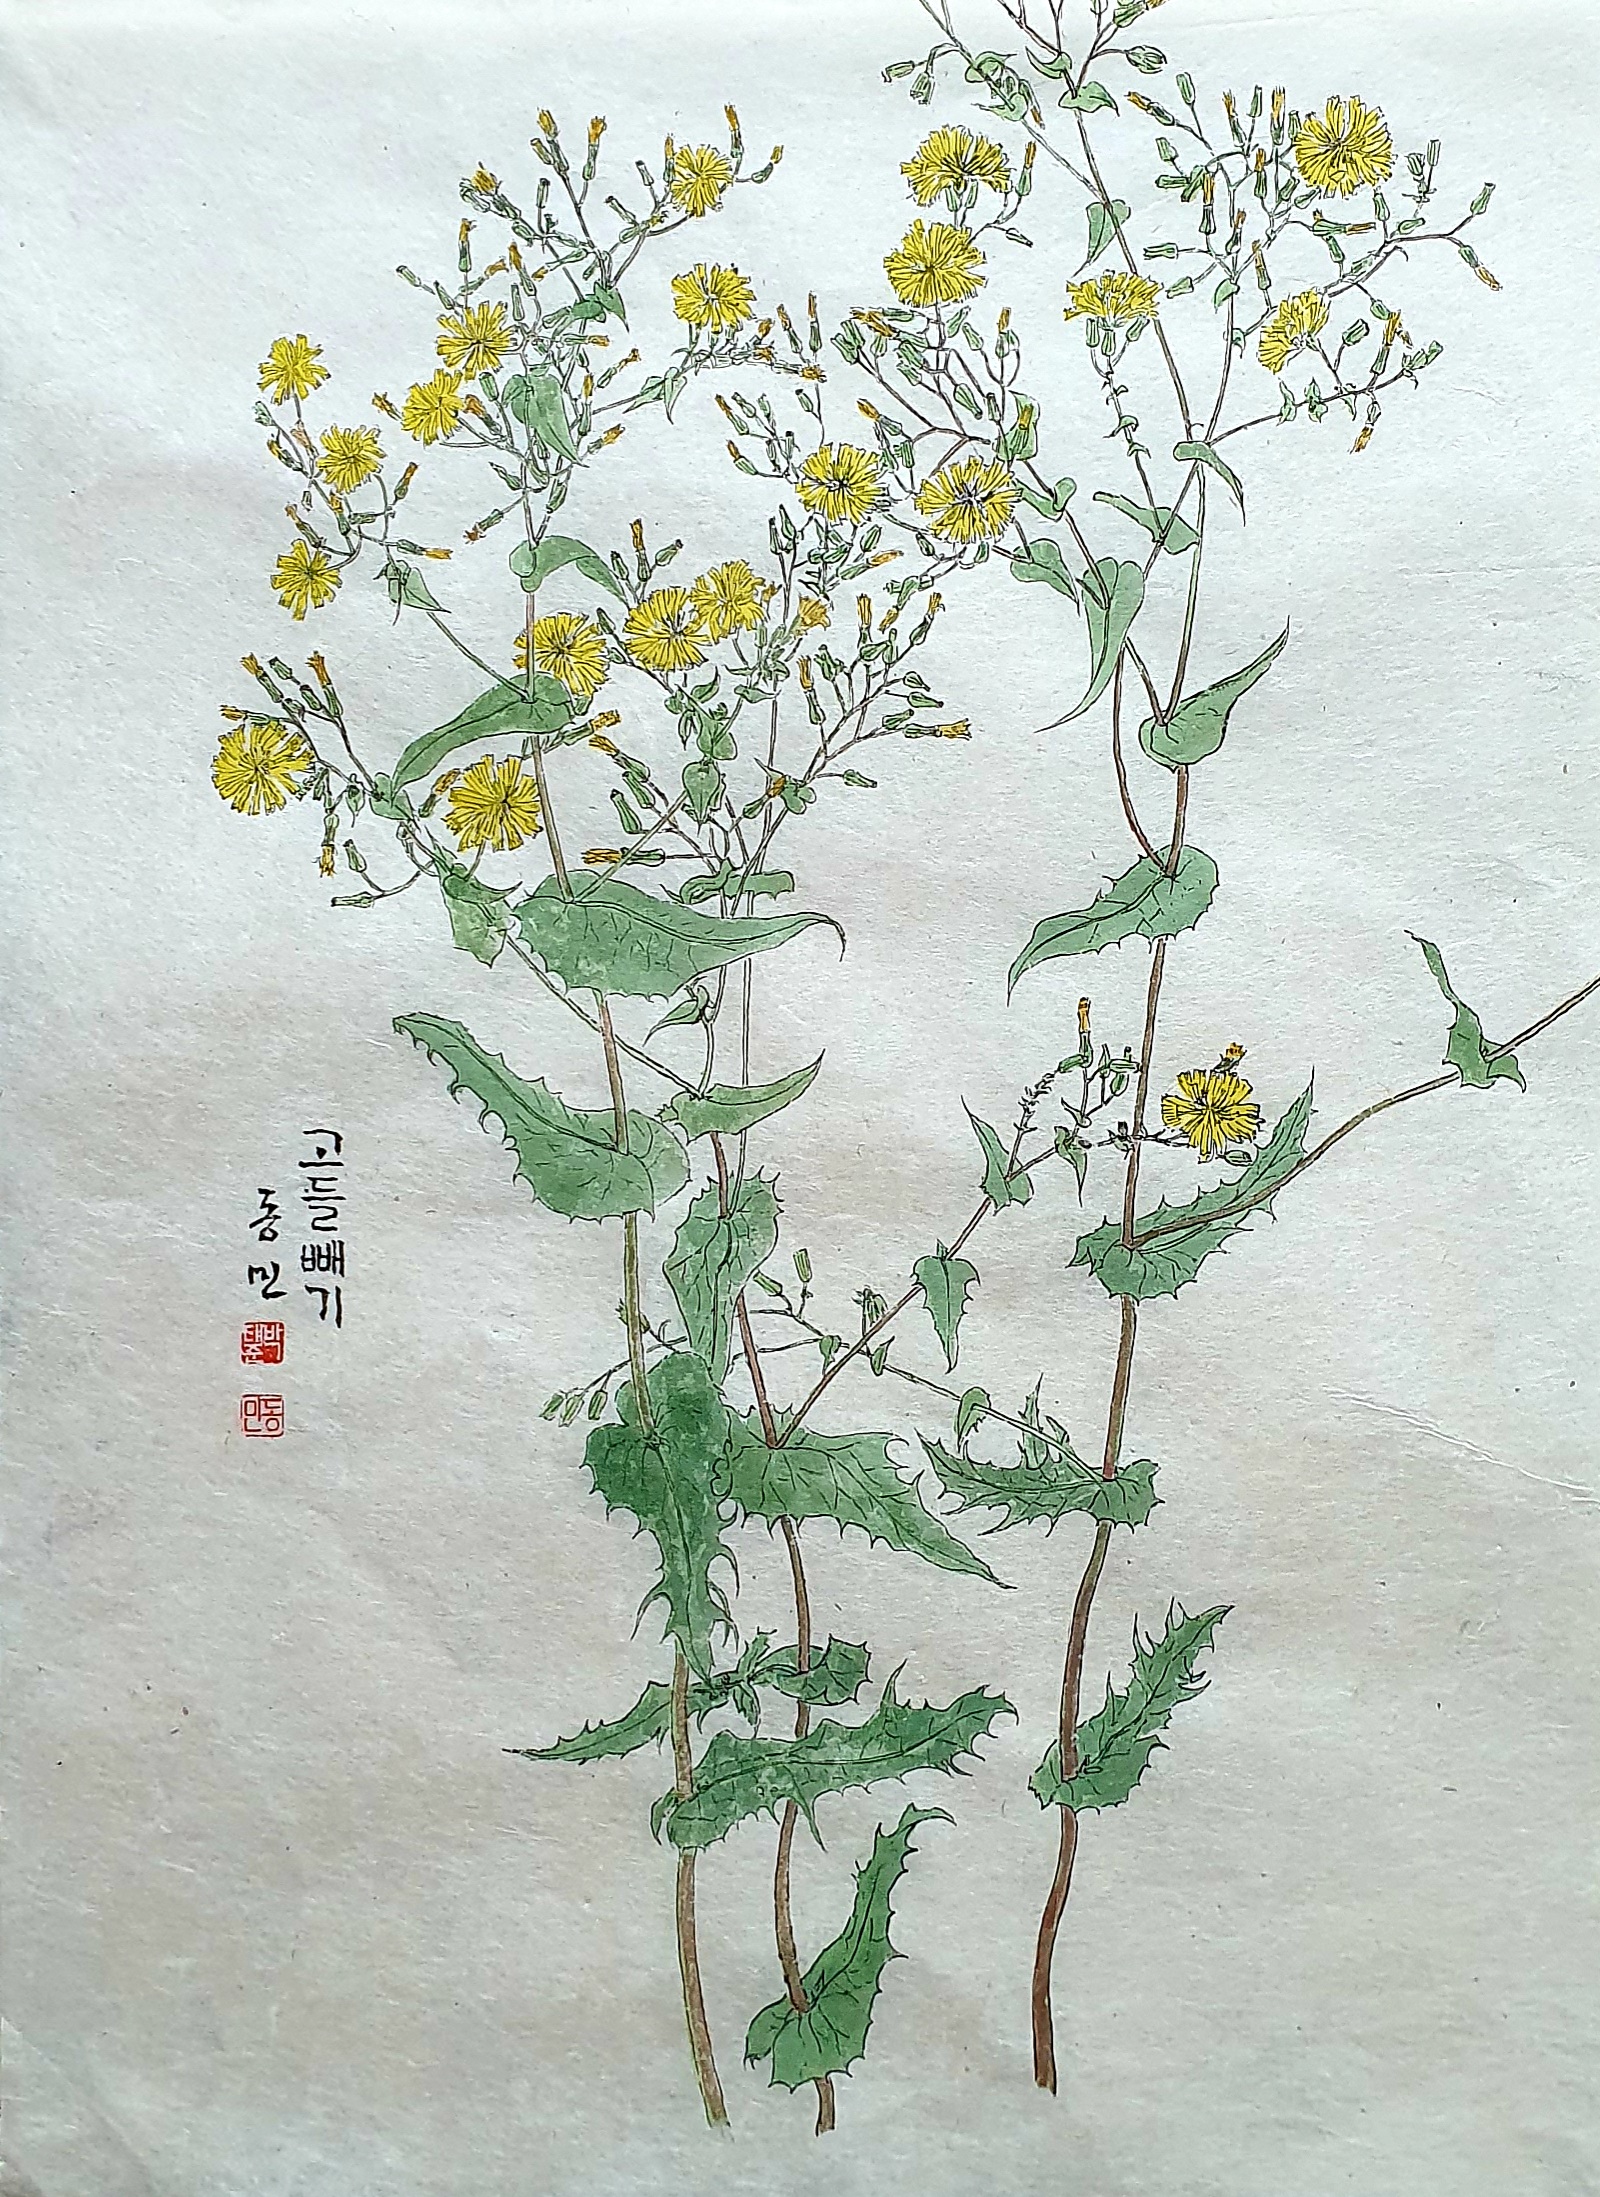 고들빼기
동민
박태준
동민